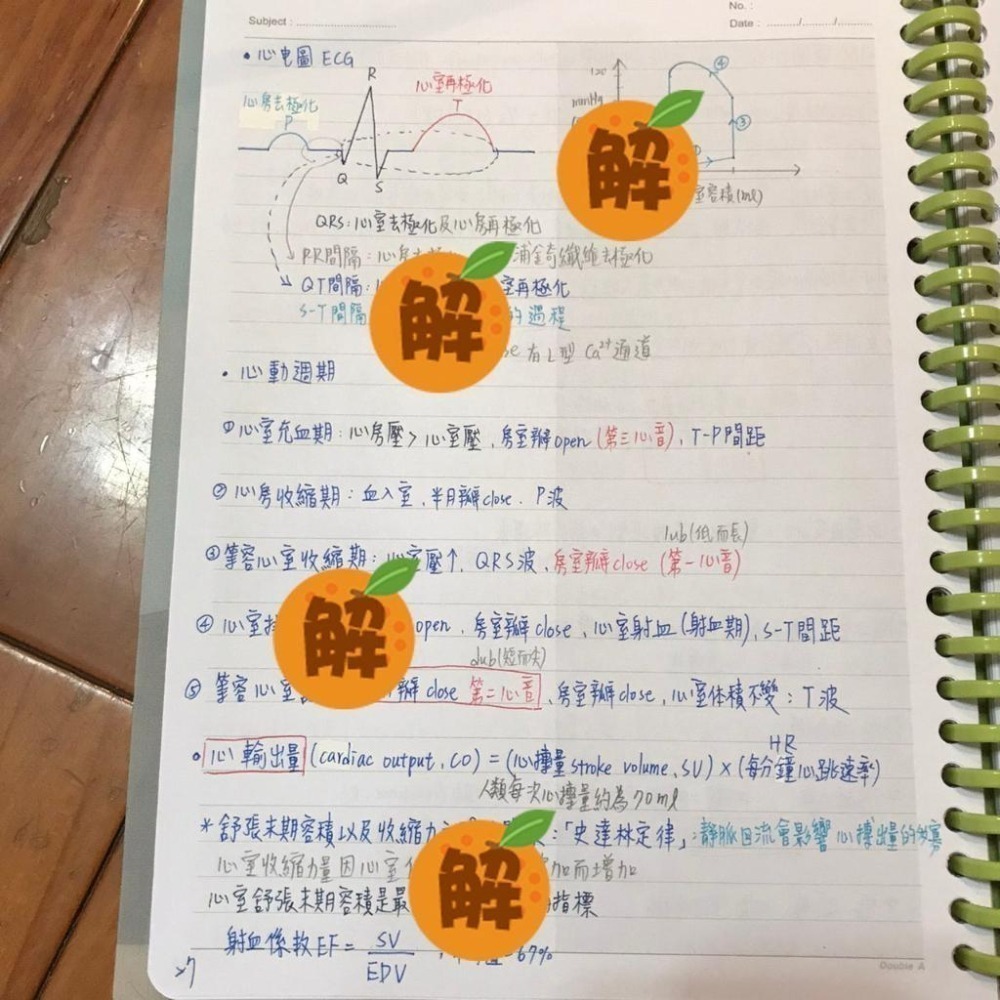 No. :
Subject :
Date : / /
• 心电圖 ECG
R
心室再極化
T
心房去極化
P
Q
S
120
mmHg
④
③
容積(ml)
解
QRS:心室去極化及心房再極化
PR間隔:心房去
浦金奇纖維去極化
QT間隔:
室再極化
S-T間隔
的過程
解
有L型 Ca²⁺通道
• 心動週期
① 心室充血期:心房壓>心室壓,房室瓣open(第三心音),T-P間距
② 心房收縮期:血入室,半月瓣close. P波
lub(低而長)
③ 等容心室收縮期:心室壓↑,QRS波,房室瓣close (第一心音)
解
④ 心室
open,房室瓣close,心室射血(射血期),S-T間距
dub(短而尖)
⑤ 等容心室
瓣close 第二心音,房室瓣close,心室体積不變:T波
HR
• 心輸出量(cardiac output, CO) = (心搏量stroke volume, SV) × (每分鐘心跳速率)
人類每次心搏量約為70ml
* 舒張末期容積以及收縮力
:「史達林定律」:靜脈回流會影響心搏出量的
心室收縮力量因心室
加而增加
解
心室舒張末期容積是最
指標
射血係數EF = SV
EDV
67%
27
Double A